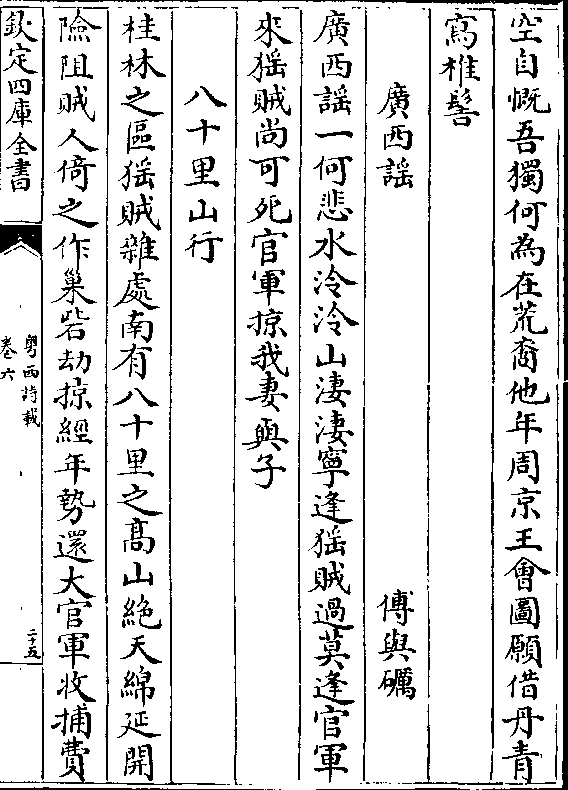 空自慨吾獨何為在荒裔他年周京王會圖願借丹青
寫椎髻
廣西謡　　　　傅與礪
廣西謡一何悲水泠泠山淒淒寧逢猺賊過莫逢官軍
來猺賊尚可死官軍掠我妻與子
八十里山行
桂林之區猺賊雜處南有八十里之髙山絶天綿延開
險阻賊人倚之作巢砦劫掠經年勢還大官軍收捕費
欽定四庫全書
粤西詩載
卷六
二十五